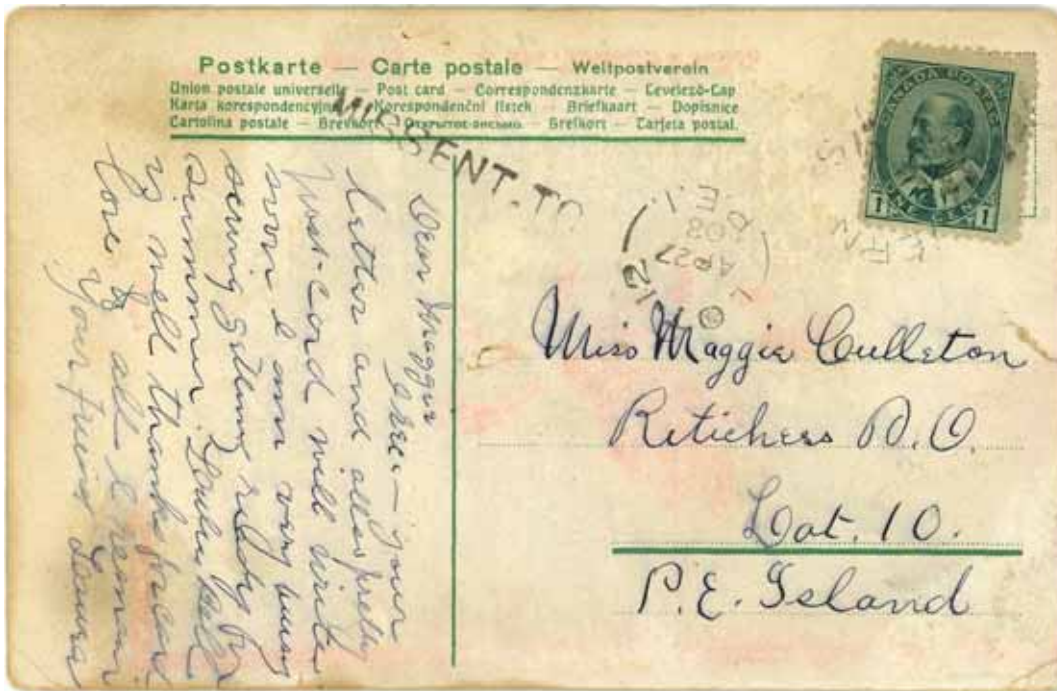 Postkarte — Carte postale — Weltpostverein
Union postale universelle — Post card — Correspondenzkarte — Levelező-Lap
Karta korespondencyjna — Korespondenční lístek — Briefkaart — Dopisnice
Cartolina postale — Brevkort — Открытое письмо — Brefkort — Tarjeta postal.
MISSENT.TO
CANADA POSTAGE
1 ONE CENT 1
12
AP 27
08
P.E.I.
Dear Maggie
Rec- your
letter and also pretty
post-card will write
soon I am very busy
sewing getting ready for
summer.
is well thanks for card
love to all I remain
Your friend Laura
Miss Maggie Culleton
P.O.
Lot. 10.
P.E. Island